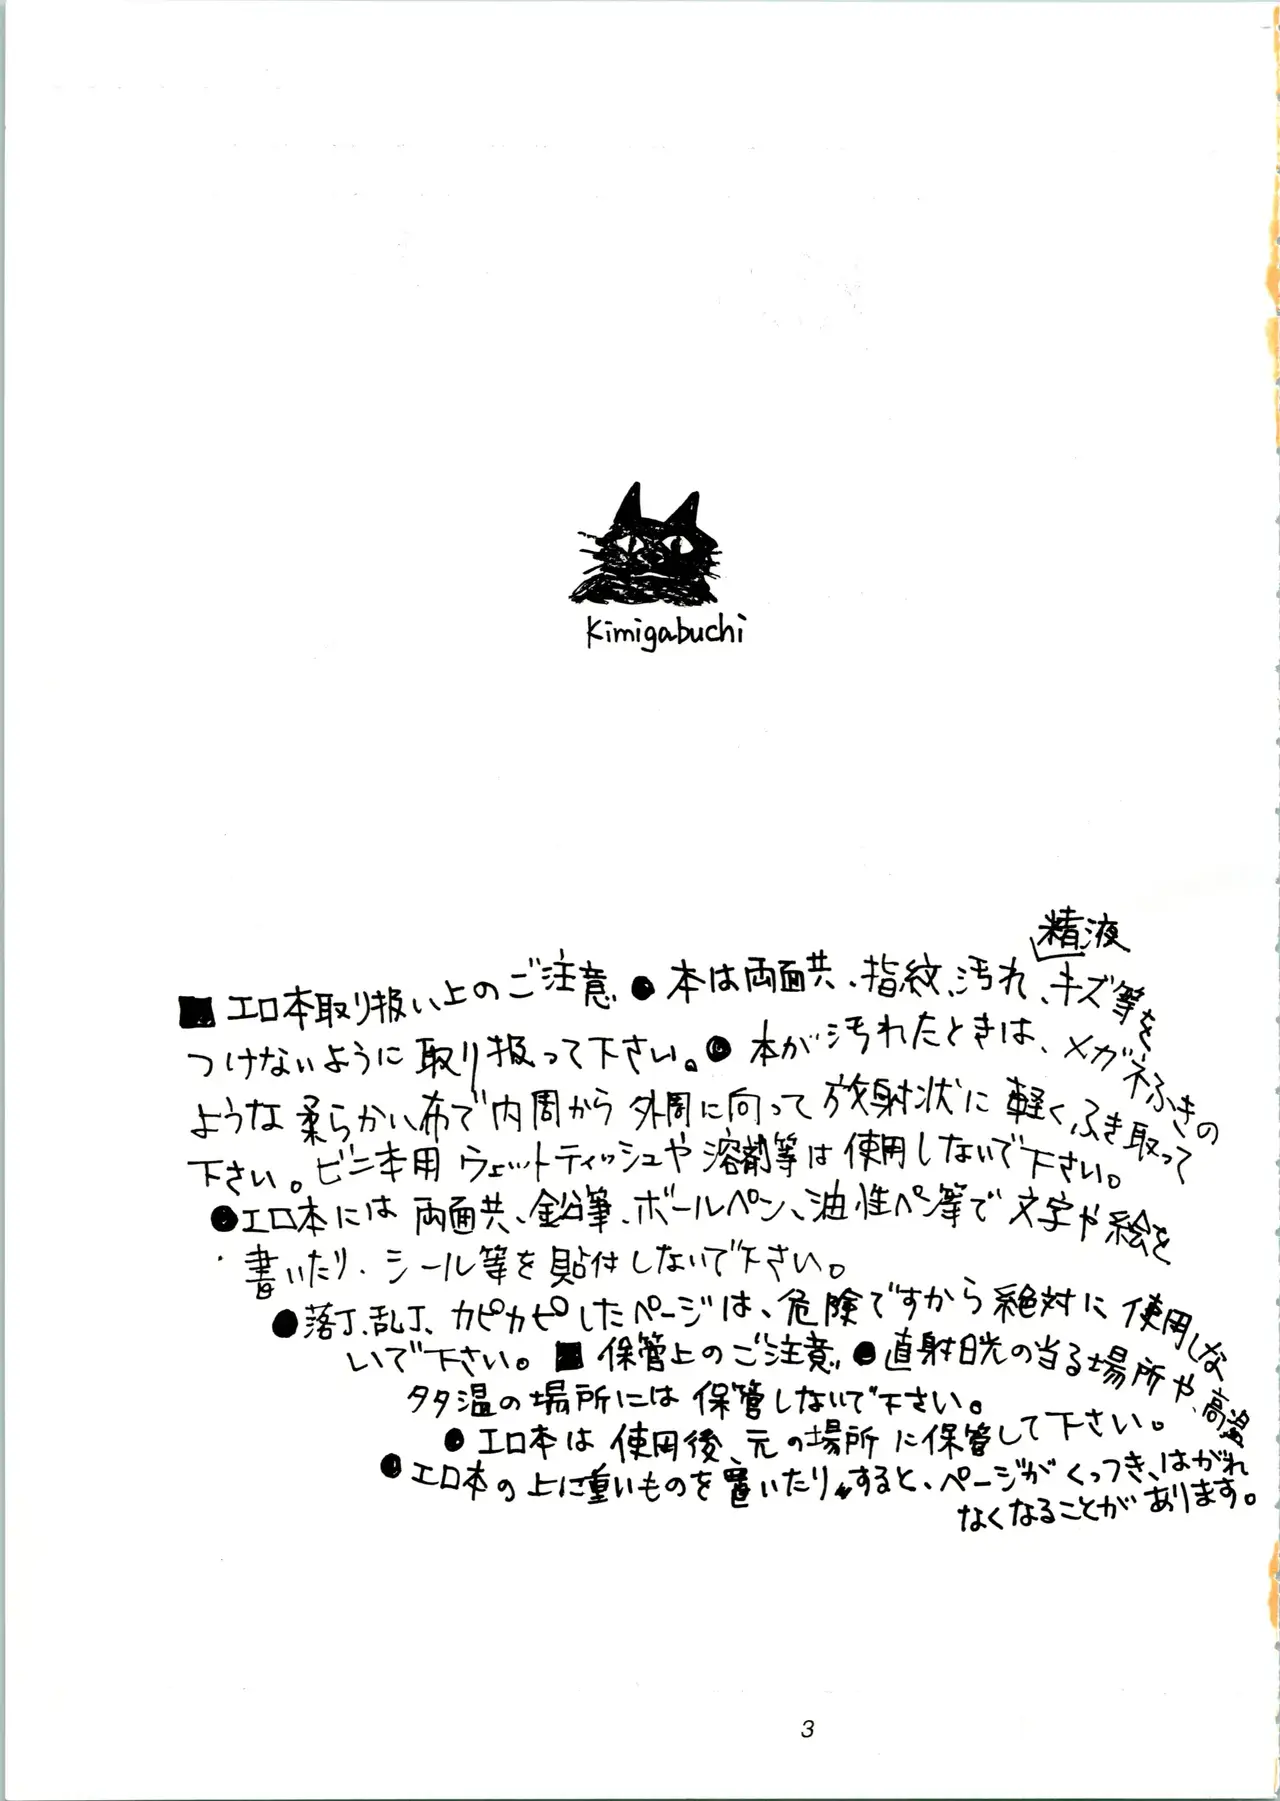 Kimigabuchi
精液
■エロ本取り扱い上のご注意●本は両面共、指紋、汚れ、キズ等を
つけないように取り扱って下さい。●本が汚れたときは、メガネふきの
ような柔らかい布で内周から外周に向って放射状に軽くふき取って
下さい。ビニ本用ウェットティッシュや溶剤等は使用しないで下さい。
●エロ本には両面共、鉛筆、ボールペン、油性ペン等で文字や絵を
書いたり、シール等を貼付しないで下さい。
●落丁、乱丁、カピカピしたページは、危険ですから絶対に使用しな
いで下さい。■保管上のご注意●直射日光の当る場所や、高温
タタ温の場所には保管しないで下さい。
●エロ本は使用後、元の場所に保管して下さい。
●エロ本の上に重いものを置いたりすると、ページがくっつき、はがれ
なくなることがあります。
3